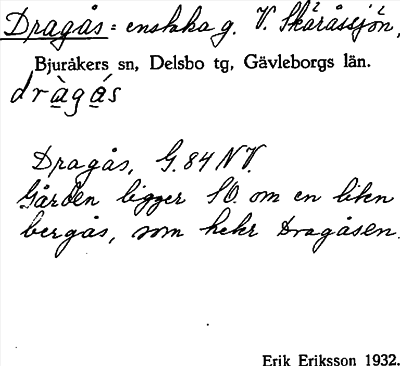 Dragås = enstaka g. V. Skåråssjön,
Bjuråkers sn, Delsbo tg, Gävleborgs län.
dràgás
Dragås, G. 84 NV.
Gården ligger SO. om en liten
bergås, som heter Dragåsen.
Erik Eriksson 1932.